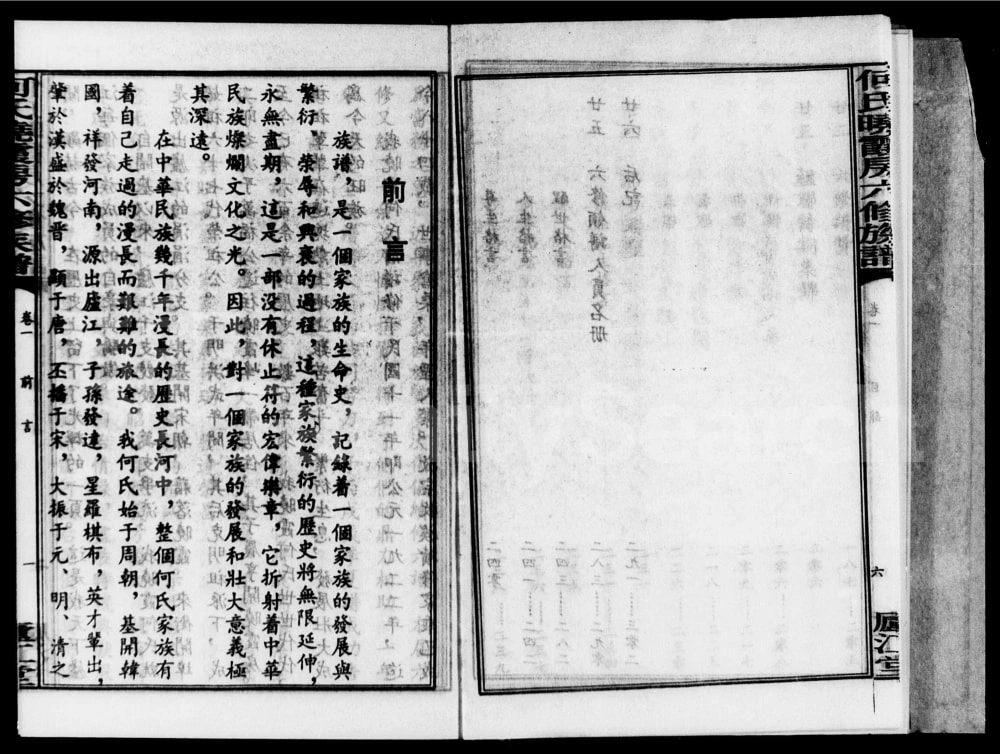 何氏曉霞房六修族譜
卷一
目錄
六
廬江堂
廿六 后記
二九一——三零二
廿五 六修領譜人員名册
二八三——二九零
醒世格言
二四三——二八二
人生格言
二四一——二四二
養生格言
二四零
前言
族譜，是一個家族的生命史，記錄着一個家族的發展與
繁衍、榮辱和興衰的過程，這種家族繁衍的歷史將無限延伸，
永無盡期，這是一部没有休止符的宏偉樂章，它折射着中華
民族燦爛文化之光。因此，對一個家族的發展和壯大意義極
其深遠。
在中華民族幾千年漫長的歷史長河中，整個何氏家族有
着自己走過的漫長而艱難的旅途。我何氏始于周朝，基開韓
國，祥發河南，源出廬江，子孫發達，星羅棋布，英才輩出，
肇於漢盛於魏晋，顯于唐，丕播于宋，大振于元、明、清之
何氏曉霞房六修族譜
卷一
前言
一
廬江堂